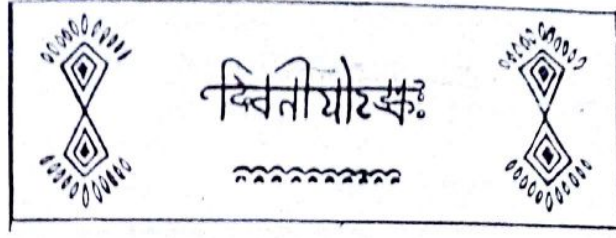 द्वितीयोऽङ्कः